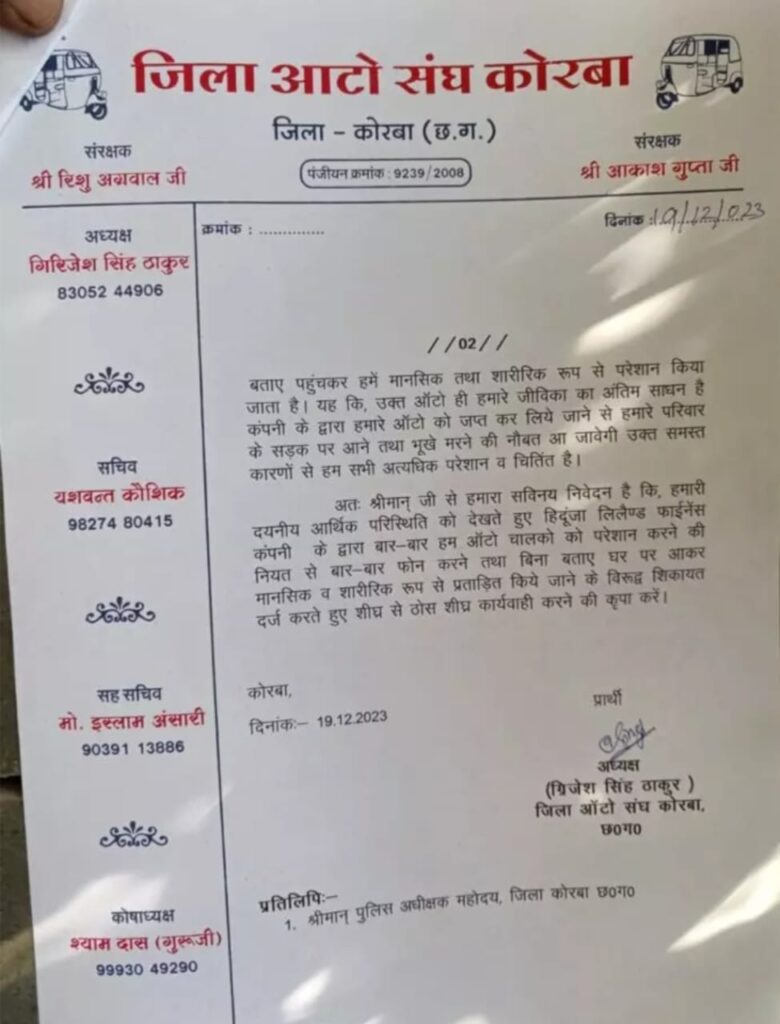 जिला आटो संघ कोरबा
जिला - कोरबा (छ.ग.)
पंजीयन क्रमांक : 9239/2008
संरक्षक
श्री रिशु अग्रवाल जी
संरक्षक
श्री आकाश गुप्ता जी
अध्यक्ष
गिरिजेश सिंह ठाकुर
83052 44906
सचिव
यशवन्त कौशिक
98274 80415
सह सचिव
मो. इस्लाम अंसारी
90391 13886
कोषाध्यक्ष
श्याम दास (गुरूजी)
99930 49290
क्रमांक : .............
दिनांक :19/12/023
//02//
बताए पहुंचकर हमें मानसिक तथा शारीरिक रूप से परेशान किया
जाता है। यह कि, उक्त ऑटो ही हमारे जीविका का अंतिम साधन है
कंपनी के द्वारा हमारे ऑटो को जप्त कर लिये जाने से हमारे परिवार
के सड़क पर आने तथा भूखे मरने की नौबत आ जावेगी उक्त समस्त
कारणों से हम सभी अत्यधिक परेशान व चितिंत है।
अतः श्रीमान् जी से हमारा सविनय निवेदन है कि, हमारी
दयनीय आर्थिक परिस्थिति को देखते हुए हिदूंजा लिलैण्ड फाईनेंस
कंपनी के द्वारा बार-बार हम ऑटो चालको को परेशान करने की
नियत से बार-बार फोन करने तथा बिना बताए घर पर आकर
मानसिक व शारीरिक रूप से प्रताड़ित किये जाने के विरूद्ध शिकायत
दर्ज करते हुए शीघ्र से ठोस शीघ्र कार्यवाही करने की कृपा करें।
कोरबा,
दिनांकः- 19.12.2023
प्रार्थी
अध्यक्ष
(ग्रिजेश सिंह ठाकुर )
जिला ऑटो संघ कोरबा,
छ0ग0
प्रतिलिपिः-
1. श्रीमान् पुलिस अधीक्षक महोदय, जिला कोरबा छ0ग0